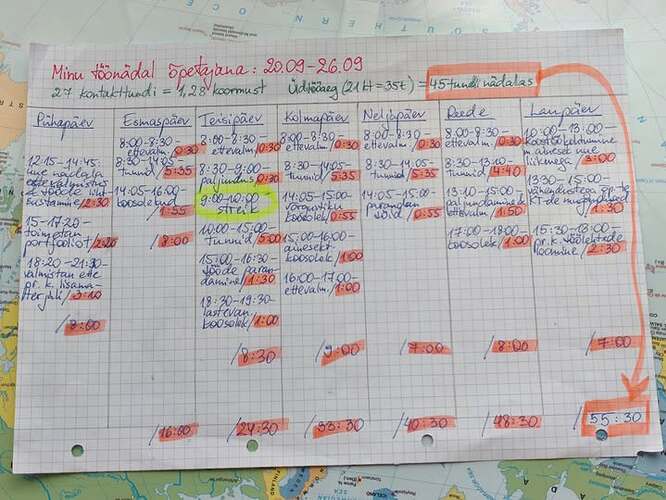 Minu töönädal õpetajana: 20.09-26.09
27 kontakttundi = 1,28 koormust Üldtööaeg (21kt = 35t) = 45 tundi nädalas
Pühapäev
12:15-14:45:
uue nädala
ettevalmistus
/2:30
15-17:20-
toimetan
portfooliot/2:20
18:20-21:30-
valmistan ette
pr. k. lisama-
terjali/3:10
/8:00
Esmaspäev
8:00-8:30-
ettevalm./0:30
8:30-14:05-
tunnid/5:35
14:05-16:00-
koosolekud
/1:55
/8:00
/16:00
Teisipäev
8:00-8:30-
ettevalm./0:30
8:30-9:00-
paljundus/0:30
9:00-10:00
streik
10:00-15:00-
tunnid/5:00
15:00-16:30-
tööde paran-
damine/1:30
18:30-19:30-
lastevan.
koosolek/1:00
/8:30
/24:30
Kolmapäev
8:00-8:30-
ettevalm./0:30
8:30-14:05-
tunnid/5:35
14:05-15:00-
koosolek/0:55
15:00-16:00-
ainesekt.
koosolek/1:00
16:00-17:00-
ettevalm./1:00
/9:00
/33:30
Neljapäev
8:00-8:30-
ettevalm./0:30
8:30-14:05-
tunnid/5:35
14:05-15:00-
parandan
töid/0:55
/7:00
/40:30
Reede
8:00-8:30-
ettevalm./0:30
8:30-13:10-
tunnid/4:40
13:10-15:00-
paljundamine &
ettevalm/1:50
17:00-18:00-
koosolek/1:00
/8:00
/48:30
Laupäev
10:00-13:00-
koostöökohtumine
liikmega/3:00
13:30-15:00-
/1:30
15:30-18:00-
pr.k. töölehtede
loomine/2:30
/7:00
/55:30